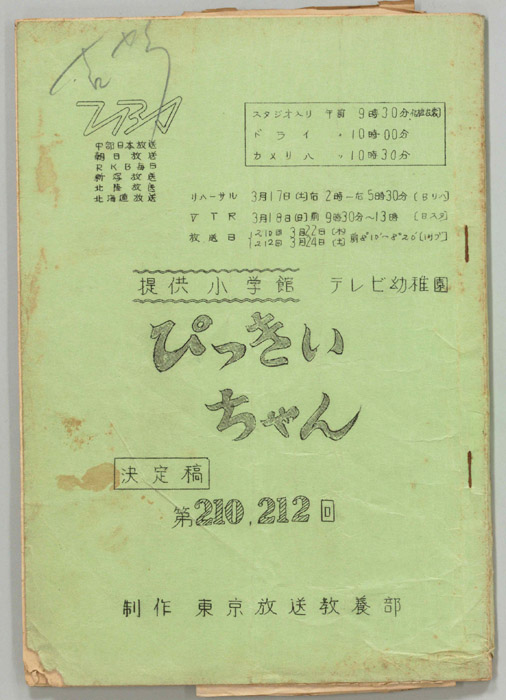 TBS
中部日本放送
朝日放送
RKB毎日
北陸放送
北海道放送
スタジオ入リ 午前 9時30分
ドライ 〃 10時00分
カメリハ 〃 10時30分
リハーサル 3月17日(土)后 2時―后5時30分(Bリハ)
VTR 3月18日(日)前 9時30分~13時 (Bスタ)
放送日 210回 3月22日(木)
212回 3月24日(土) 前8°10'~8°20'
提供 小学館 テレビ幼稚園
ぴっきい
ちゃん
決定稿
第210,212回
制作 東京放送教養部